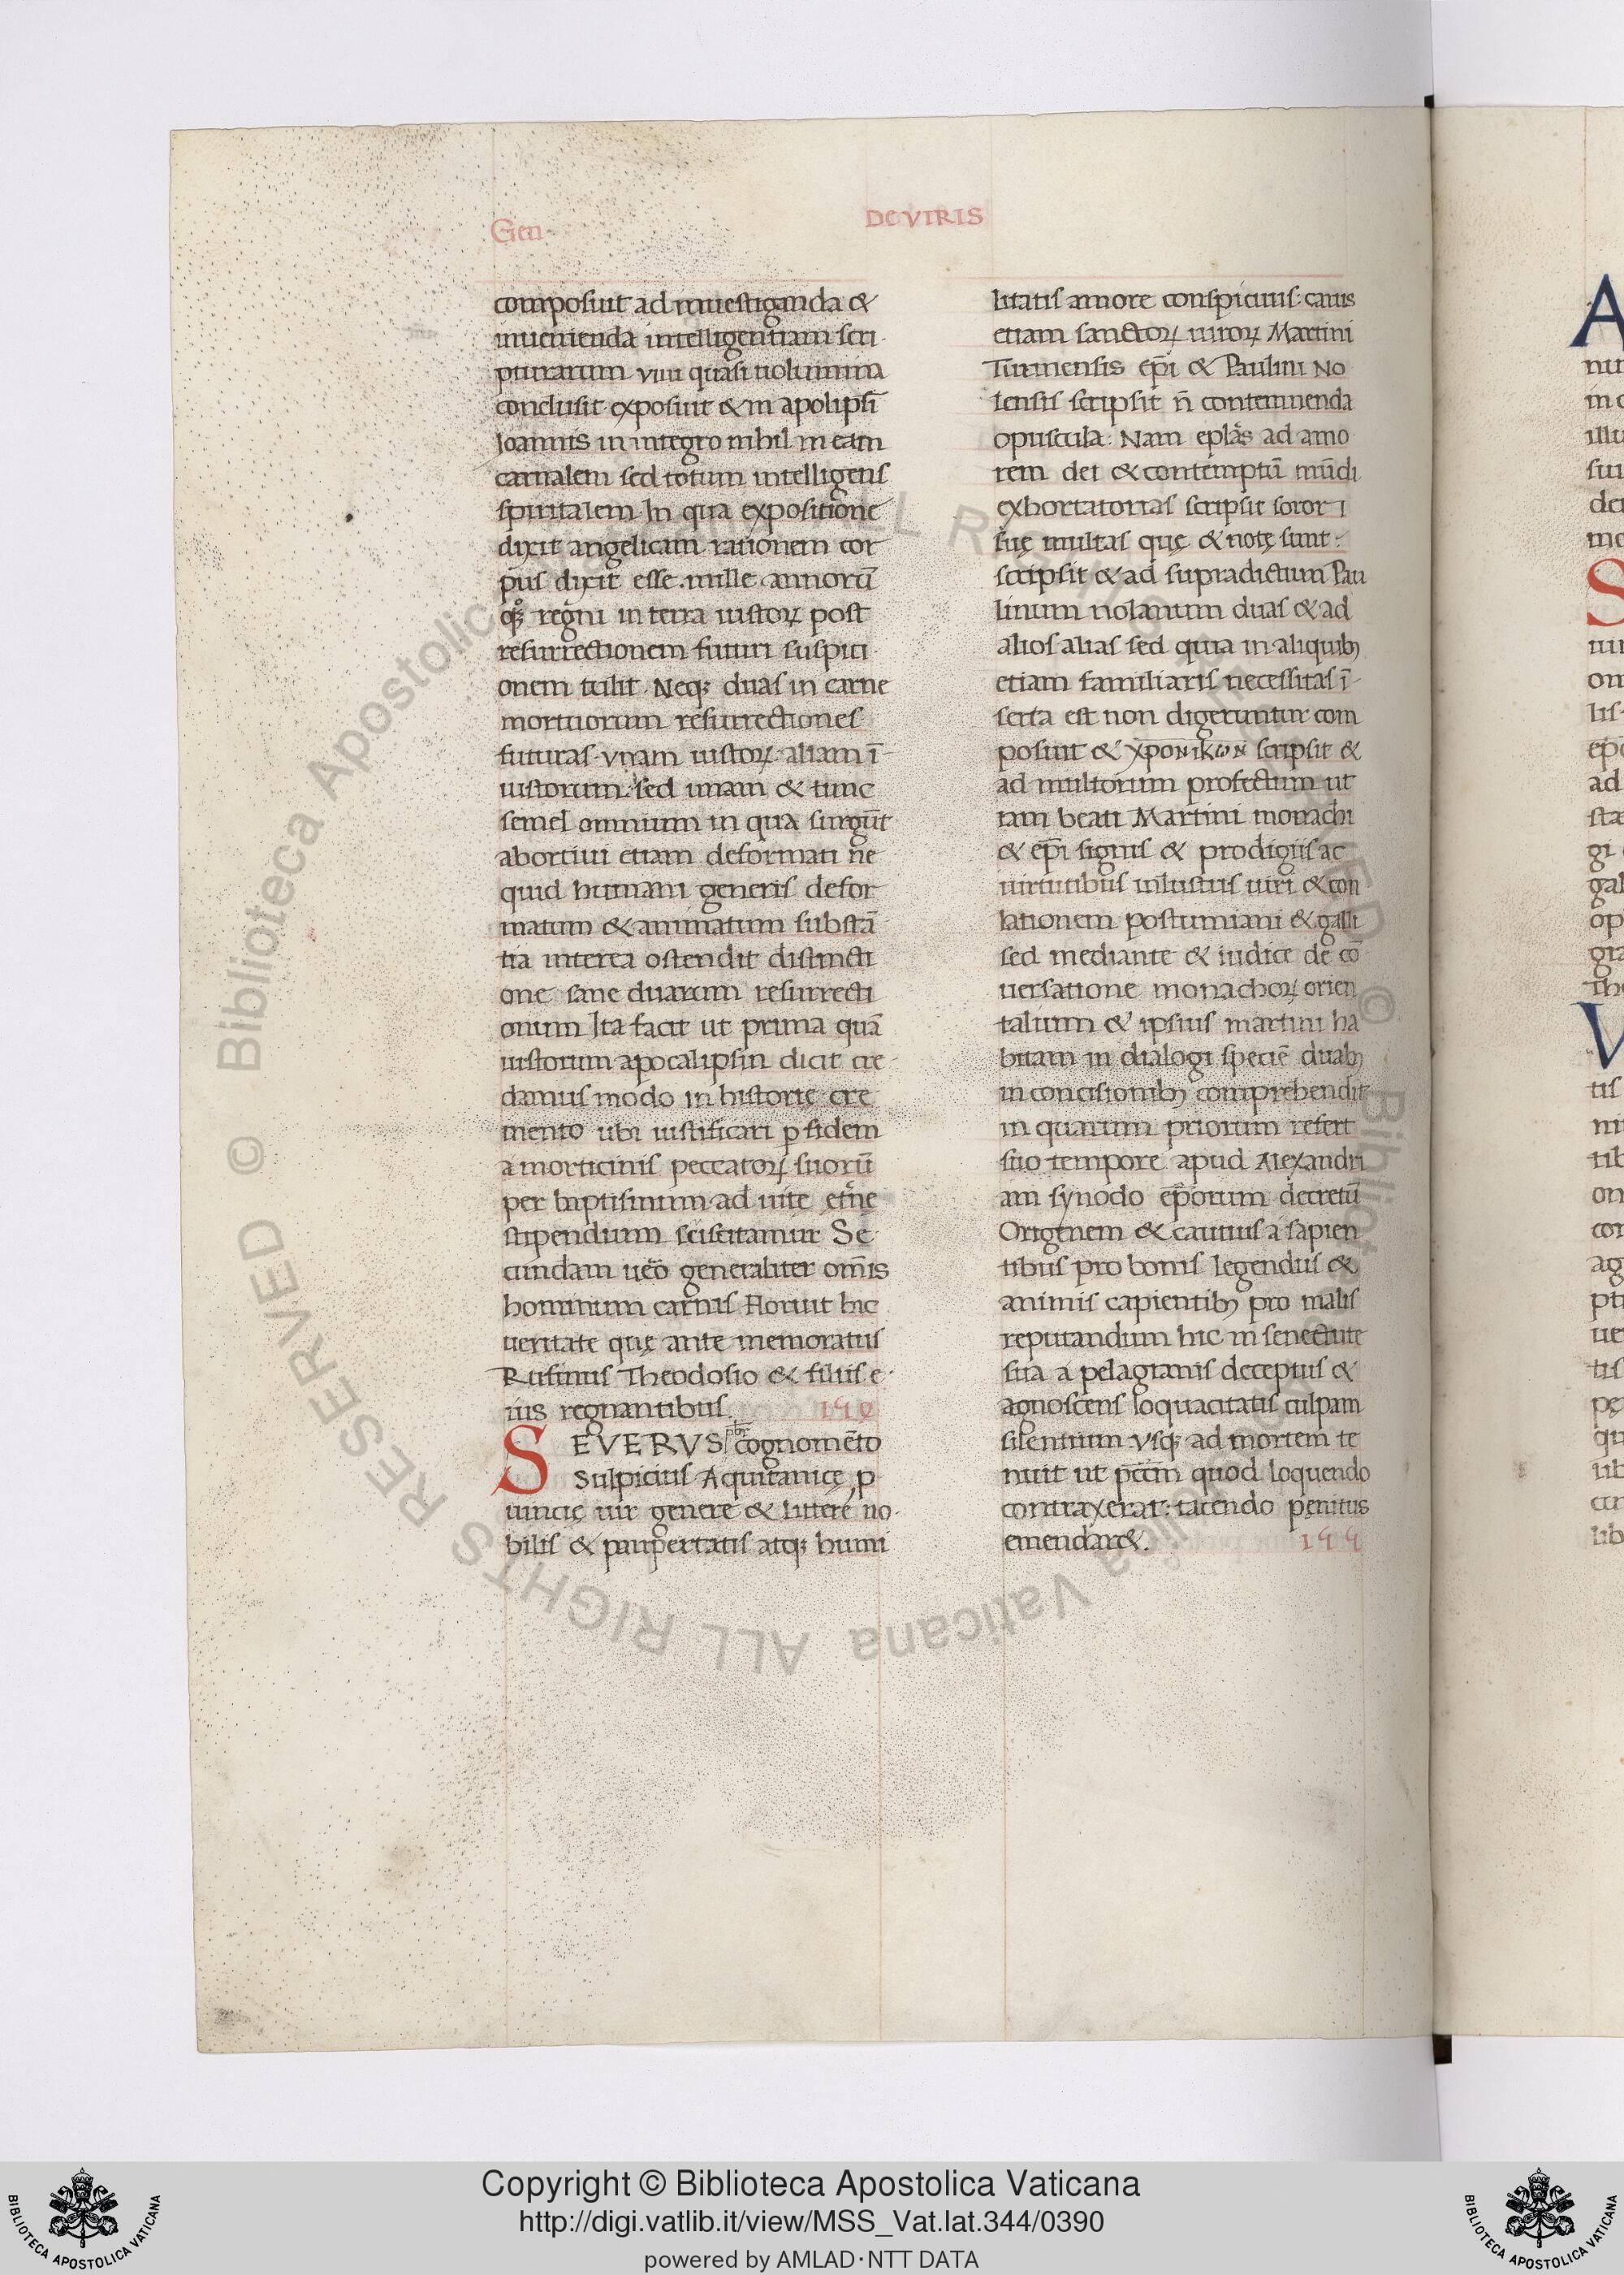 Gen·
DE VIRIS
composuit ad inuestiganda &
inuenienda intelligentiam scri·
pturarum VIIII quasi uolumina
conclusit· exposuit & in apolipsī
Ioannis in integro nihil in eam
carnalem sed totum intelligens
spiritalem· In qua expositione
dixit angelicam rationem cor
pus dixit esse. mille annorū
q̨ regni in terra iustoꝝ post
resurrectionem futuri suspiti
onem tulit· Neqꝫ duas in carne
mortuorum resurrectiones
futuras· vnam iustoꝝ· aliam ī-
iustorum: sed unam & tunc
semel omnium in qua surgūt
abortiui etiam deformati ne
quid humani generis defor
matum & animatum substā
tia interea ostendit distincti
one sane duarum resurrecti
onum Ita facit ut prima quā
iustorum apocalipsin dicit cre-
damus modo in historię cre
mento ubi iustificari ꝑ fidem
a morticinis peccatoꝝ suorū
per baptismum· ad uitę etn̄ę
stipendium sciscitamur Se
cundam ueo generaliter om̄is
hominum carnis Floruit hic
ueritate quę ante memoratus
Rufinus Theodosio & filiis e·
ius regnantibus.
SEVERVS pbr cognomēto
Sulpicius Aquitanicę ꝓ
uincię uir genere & litterę no·
bilis & paupertatis atqꝫ humi
litatis amore conspicuus: carus
etiam sanctoꝝ uiroꝝ Martini
Turinensis ep̄i & Paulini No
lensis scripsit n̄ contemnenda
opuscula: Nam epl̄as ad amo
rem dei & contemptū mūdi
exhortatorias scripsit soror I
suę multas quę & notę sunt:
scripsit & ad supradictum Pau
linum nolanum duas & ad
alios alias sed quia in aliquibꝫ
etiam familiaris necessitas ī-
serta est non digeruntur com
posuit & χρονικων scripsit &
ad multorum profectum ut
tam beati Martini monachi
& ep̄i signis & prodigiis ac
uirtutibus inlustris uiri & con
lationem postumiani & galli
sed mediante & iudice de cō
uersatione monachoꝝ orien
talium & ipsius martini ha
bitam in dialogi speciē duabꝫ
in concisionibꝫ comprehendit
in quarum priorum refert
suo tempore apud Alexandri
am synodo ep̄orum decretū
Origenem & cautius a sapien
tibus pro bonis legendus &
animis capientibꝫ pro malis
reputandum hic in senectute
sua a pelagianis deceptus &
agnoscens loquacitatis culpam
silentium vsqꝫ ad mortem te
nuit ut pc̄c̄m quod loquendo
contraxerat: tacendo pęnitus
emendar&.
Copyright © Biblioteca Apostolica Vaticana
http://digi.vatlib.it/view/MSS_Vat.lat.344/0390
powered by AMLAD·NTT DATA